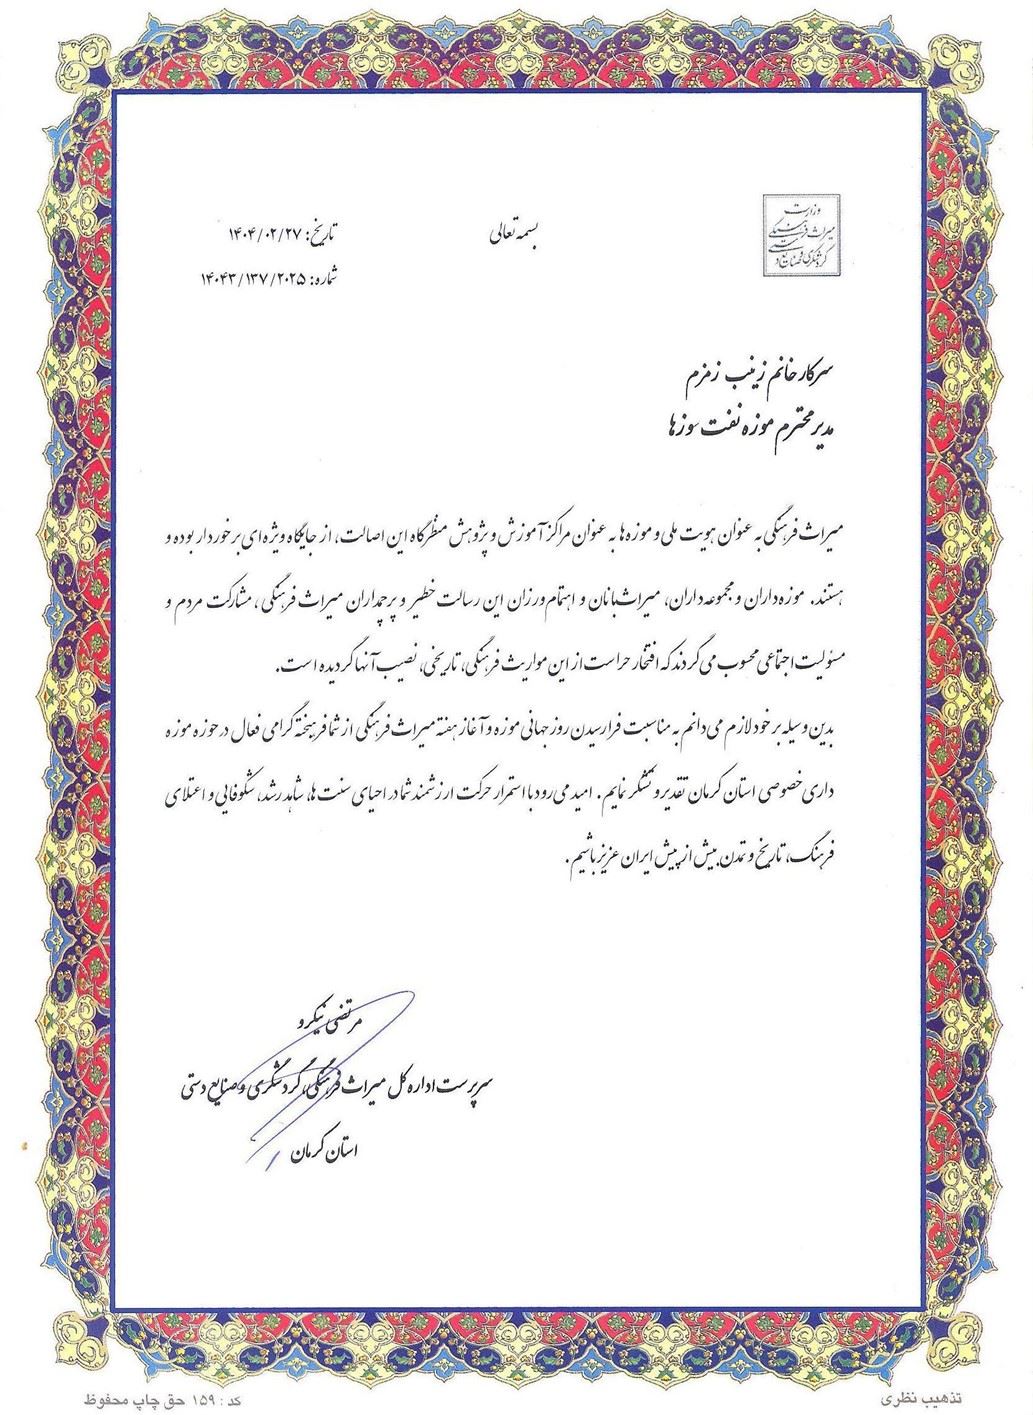 وزارت
میراث فرهنگی
گردشگری و صنایع دستی
بسمه تعالی
تاریخ: ۱۴۰۴/۰۲/۲۷
شماره: ۱۴۰۴۳/۱۳۷/۲۰۲۵
سرکار خانم زینب زمزم
مدیر محترم موزه نفت سوزها
میراث فرهنگی به عنوان هویت ملی و موزه ها به عنوان مراکز آموزش و پژوهش منظرگاه این اصالت، از جایگاه ویژه ای برخوردار بوده و
هستند. موزه داران و مجموعه داران، میراث بانان و اهتمام ورزان این رسالت خطیر و پرچمداران میراث فرهنگی، مشارکت مردم و
مسئولیت اجتماعی محسوب می گردند که افتخار حراست از این مواریث فرهنگی، تاریخی، نصیب آنها گردیده است.
بدین وسیله بر خود لازم می دانم به مناسبت فرارسیدن روز جهانی موزه و آغاز هفته میراث فرهنگی از شما فرهیخته گرامی فعال در حوزه موزه
داری خصوصی استان کرمان تقدیر و تشکر نمایم. امید می رود با استمرار حرکت ارزشمند شما در احیای سنت ها، شاهد رشد، شکوفایی و اعتلای
فرهنگ، تاریخ و تمدن بیش از پیش ایران عزیز باشیم.
مرتضی نیکرو
سرپرست اداره کل میراث فرهنگی، گردشگری و صنایع دستی
استان کرمان
تذهیب نظری
کد : ۱۵۹ حق چاپ محفوظ